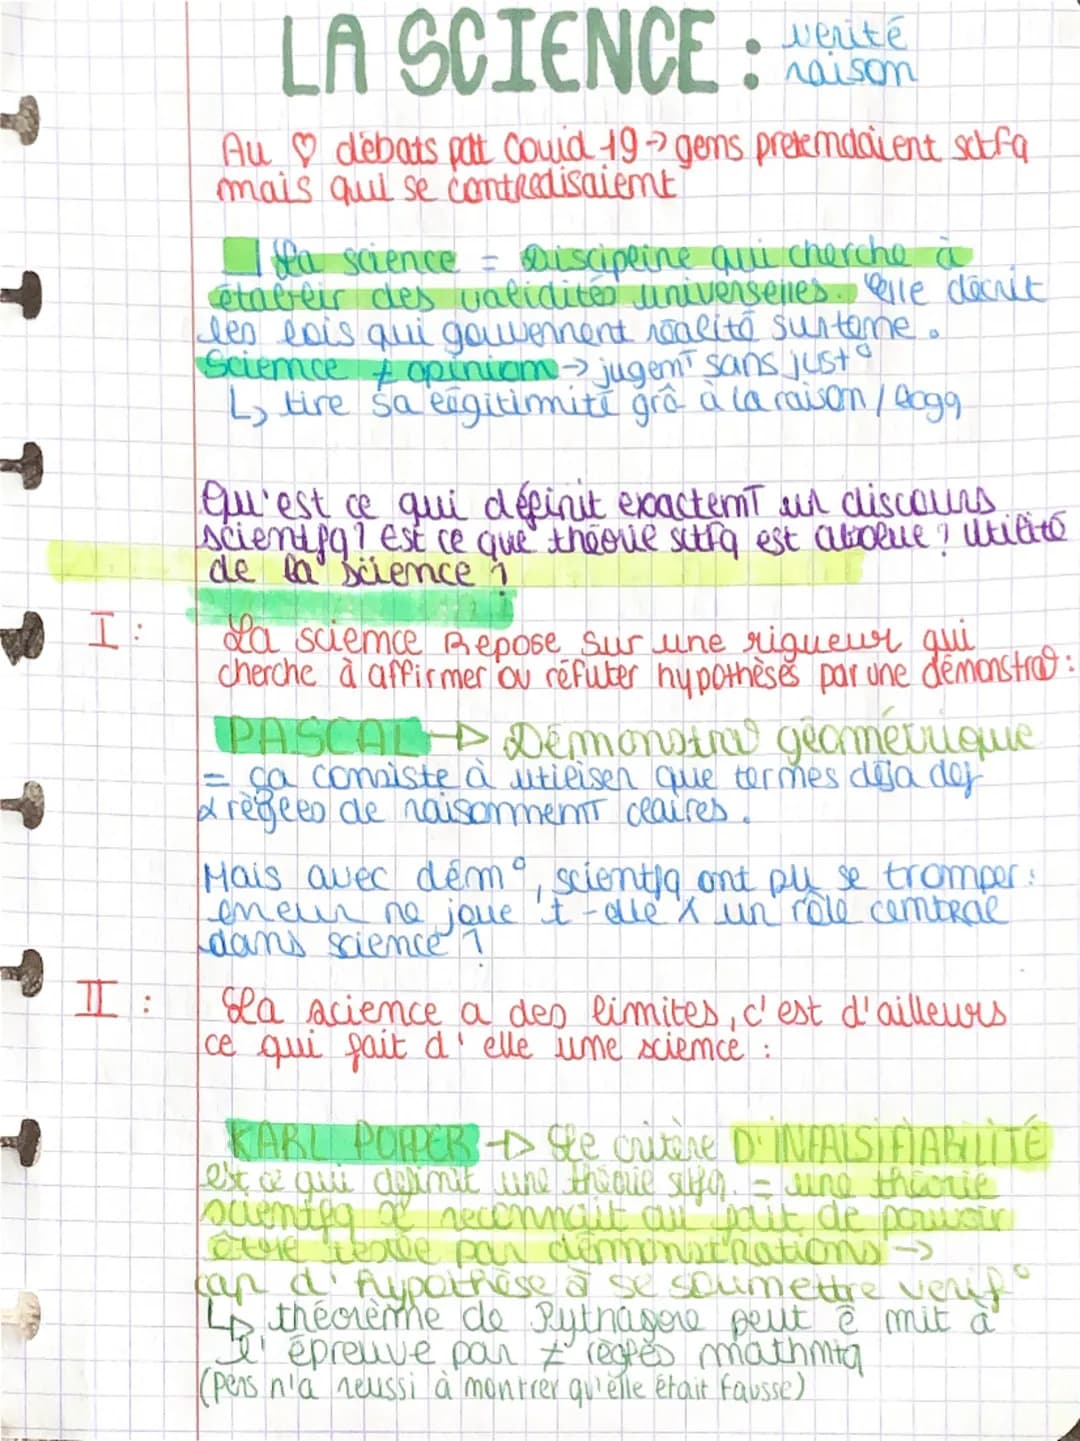 LA SCIENCE : verité
raison
Au ♡ débats pdt Covid-19 → gens pretendaient sctfq
mais qui se contredisaient
La science = Discipline qui cherche à
établir des validités universelles. Elle décrit
les lois qui gouvernent réalité
Science ≠ opinion → jugemT sans just°
↳ tire sa légitimité grâ à la raison / logq
Qu'est ce qui définit exactemT un discours
scientifq? est ce que théorie sctfq est absolue ? Utilité
de la science ?
I : La science Repose sur une rigueur qui
cherche à affirmer ou réfuter hypothèses par une démonstrat° :
PASCAL → Démonstra° géométrique
= ça consiste à utiliser que termes déja def
& règles de raisonnemT claires.
Mais avec dém°, scientfq ont pu se tromper :
erreur ne joue t-elle X un rôle central
dans science ?
II : La science a des limites, c'est d'ailleurs
ce qui fait d'elle une science :
KARL POPPER → Le critère D'INFALSIFIABILITÉ
est ce qui définit une théorie stfq. = une théorie
scientfq se reconnait au fait de pouvoir
être testée par démonstrations →
cap d'hypothèse à se soumettre verif°
↳ théorème de Pythagore peut ê mit à
l'épreuve par ≠ règles mathmtq
(pers n'a reussi à montrer qu'elle était fausse)